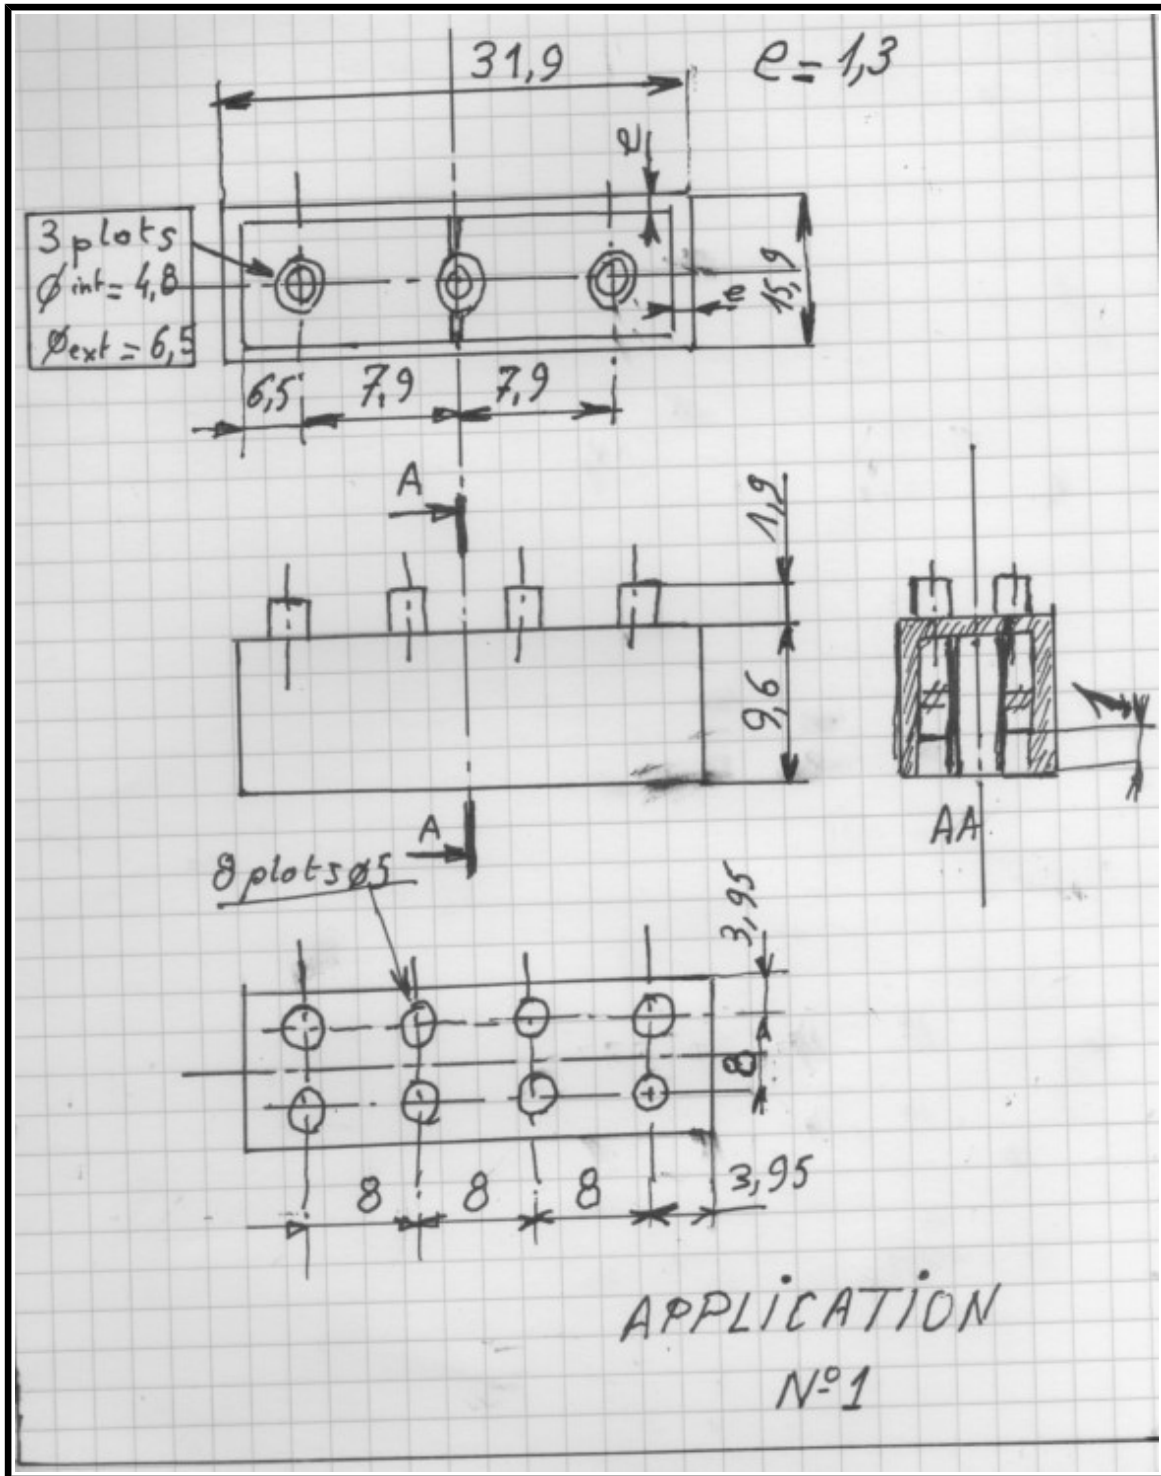 31,9
e = 1,3
e
3 plots
Ø int = 4,8
Ø ext = 6,5
e
15,9
6,5
7,9
7,9
A
1,9
9,6
A
AA
8 plots ø5
3,95
8
8
8
8
3,95
APPLICATION
N° 1